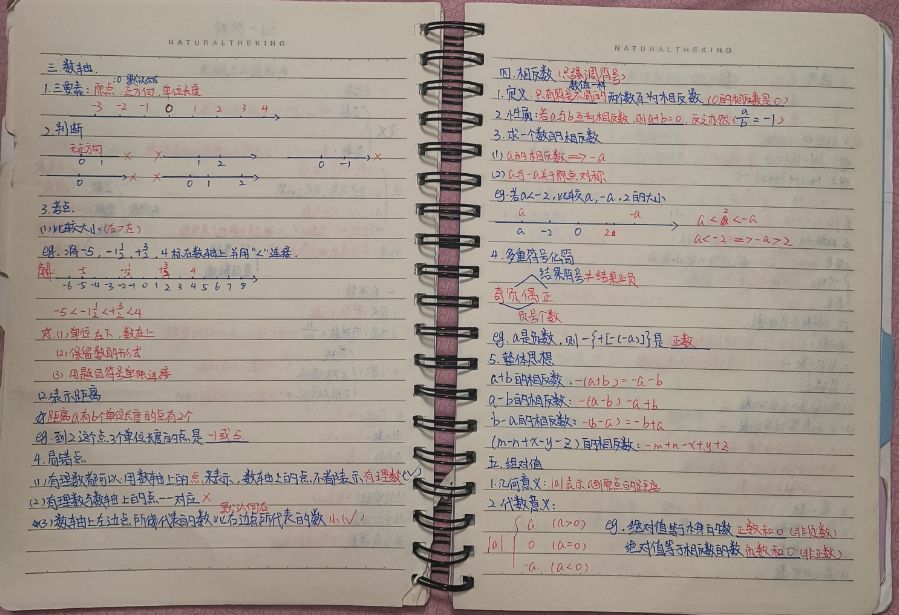 NATURALTHEKING
三.数轴.
1.三要素:原点 正方向,单位长度
-3 -2 -1 0 1 2 3 4
2.判断
无正方向
0 1 × × 1 2 0 -1 ×
0 × × 0 1 2
3.考点.
(1)比较大小(右>左)
eg.将-5,-1½,+3/2,4标在数轴上并用"<"连接.
解
-6 -5 -4 -3 -2 -1 0 1 2 3 4 5 6 7 8
-5<-1½<+3/2<4
☆(1)单位在下,数在上
(2)保留数的形式
(3)用题目符号单独连接
(2)表示距离
☆距离a有b个单位长度的点有2个
eg.到2这个点3个单位长度的点是 -1或5.
4.易错点.
(1)有理数都可以用数轴上的点来表示,数轴上的点不都表示有理数(√)
(2)有理数与数轴上的点一一对应×
默认向右
(3)数轴上左边点所代表的数比右边点所代表的数小(√)
NATURALTHEKING
四.相反数(只强调符号)
数值一样
1.定义:只有符号不同的两个数互为相反数(0的相反数是0)
2.性质:若a与b互为相反数,则a+b=0,反之亦然(a/b=-1)
3.求一个数的相反数
(1)a的相反数=>-a
(2)a与-a关于原点对称
eg.若a<-2,比较a,-a,2的大小
a -a
a -2 0 2
a<2<-a
a<-2=>-a>2
4.多重符号化简
结果符号≠结果正负
奇负偶正
负号个数
eg.a是负数,则-{+[-(-a)]}是 正数
5.整体思想
a+b的相反数:-(a+b)=-a-b
a-b的相反数:-(a-b)=-a+b
b-a的相反数:-(b-a)=-b+a
(m-n+x-y-z)的相反数:-m+n-x+y+z
五.绝对值
1.几何意义:|a|表示a到原点的距离
2.代数意义:
a (a>0) eg.绝对值等于本身的数 正数和0(非负数)
|a| 0 (a=0) 绝对值等于相反数的数 负数和0(非正数)
-a (a<0)